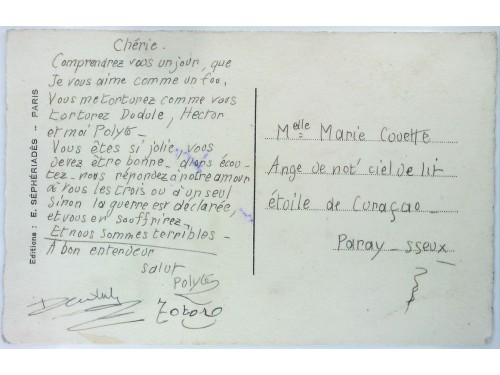 Chérie.
Comprendrez vous un jour, que
Je vous aime comme un fou.
Vous me torturez comme vous
torturez Dudule, Hector
et moi Polyte_
Vous êtes si jolie, vous
devez être bonne. alors écou-
tez-nous, répondez à notre amour
à vous les trois ou d'un seul
Sinon la guerre est déclarée,
et vous en souffrirez,
Et nous sommes terribles_
A bon entendeur
salut
Polyte
Editions : E. SÉPHÉRIADÈS — PARIS
Melle Marie Couette
Ange de not' ciel de lit
étoile de Curaçao_
Paray_sseux